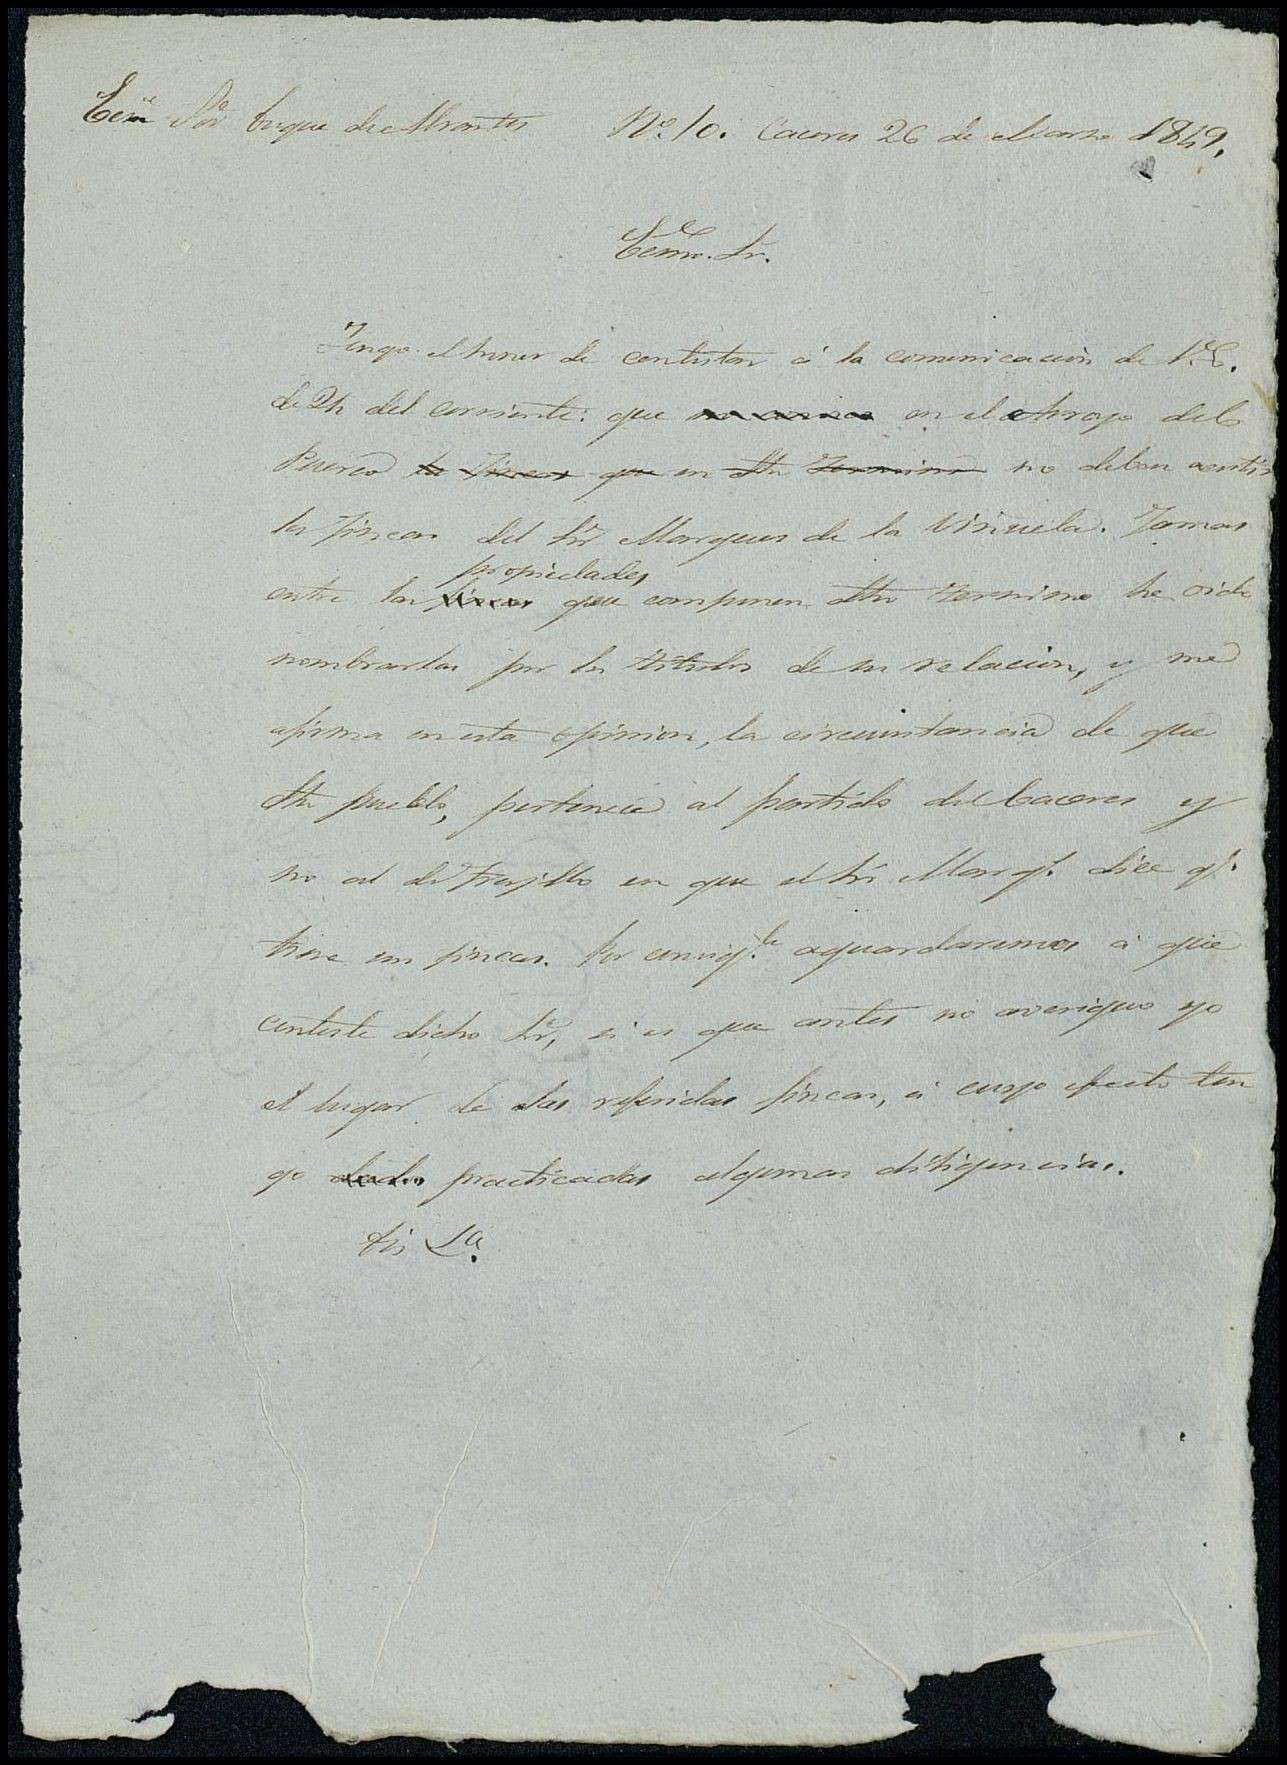 Exmo Sor Duque de Abrantes No. 10. Caceres 26 de Marzo 1849.
Exmo. Sr.
Tengo el honor de contestar á la comunicacion de V.E.
de 24 del corriente: que en el Arroyo del
Puerco las fincas que en dho termino no deben ecsistir
las fincas del Sr Marques de la Viñuela. Jamas
propiedades
entre las fincas que componen dho termino he oido
nombrarlas por los titulos de su relacion, y me
afirma en esta opinion, la circunstancia de que
dho pueblo, pertenece al partido de Caceres y
no al de Trujillo en que el Sr Marqs. dice qe.
tiene sus fincas. Por consigte. aguardaremos á que
conteste dicho Sr, si es que antes no averiguo yo
el lugar de las referidas fincas, á cuyo efecto ten
go dado practicadas algunas diligencias.